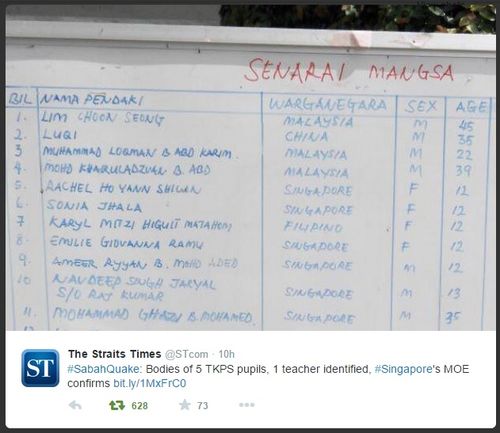 SENARAI MANGSA
BIL NAMA PENDAKI WARGANEGARA SEX AGE
1. LIM CHOON SEONG MALAYSIA M 45
2. LUQI CHINA M 35
3 MUHAMMAD LOQMAN B ABD KARIM. MALAYSIA M 22
4. MOHD KHAIRULADZUAN B. ABD MALAYSIA M 39
5. RACHEL HO YANN SHIUAN SINGAPORE F 12
6. SONIA JHALA SINGAPORE F 12
7 KARYL MITZI HIGUIT MATAHOM FILIPINO F 12
8. EMILIE GIOVANNA RAMU SINGAPORE F 12
9. AMEER RYYAN B. MOHD SINGAPORE M 12
10 NAVDEEP SINGH JARYAL
S/O RAJ KUMAR SINGAPORE M 13
11. MOHAMMAD GHAZI B. MOHAMED. SINGAPORE M 35
ST
The Straits Times @STcom · 10h
#SabahQuake: Bodies of 5 TKPS pupils, 1 teacher identified, #Singapore's MOE
confirms bit.ly/1MxFrC0
628 73